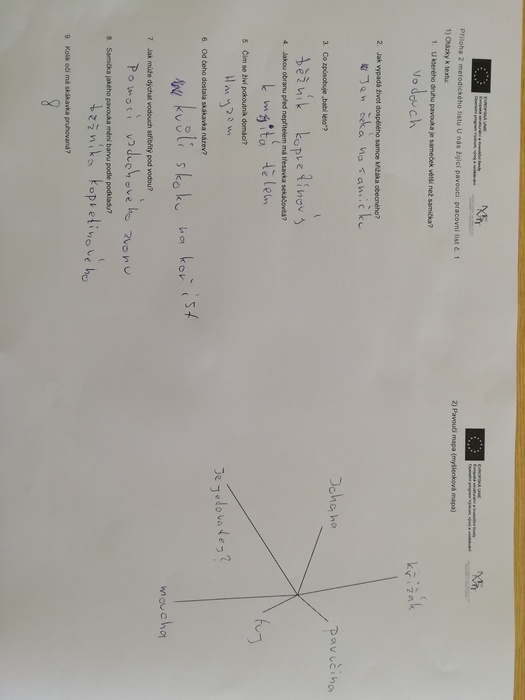 EVROPSKÁ UNIE
Příloha 2 metodického listu U nás žijící pavouci: pracovní list č. 1
1) Otázky k textu:
1. U kterého druhu pavouka je sameček větší než samička?
vodouch
2. Jak vypadá život dospělého samce křižáka obecného?
Jen čeká na samičku
3. Co způsobuje „babí léto"?
běžník kopretinový
4. Jakou obranu před nepřítelem má třesavka sekáčovitá?
kmitá tělem
5. Čím se živí pokoutník domácí?
Hmyzom
6. Od čeho dostala skákavka název?
kvoli skoku na kořist
7. Jak může dýchat vodouch stříbřitý pod vodou?
Pomocí vzduchového zvonu
8. Samička jakého pavouka mění barvu podle podkladu?
běžníka kopretinového
9. Kolik očí má skákavka pruhovaná?
8
EVROPSKÁ UNIE
2) Pavoučí mapa (myšlenková mapa)
křižák
Johana
pavučina
fuj
Je jedovatey?
moucha